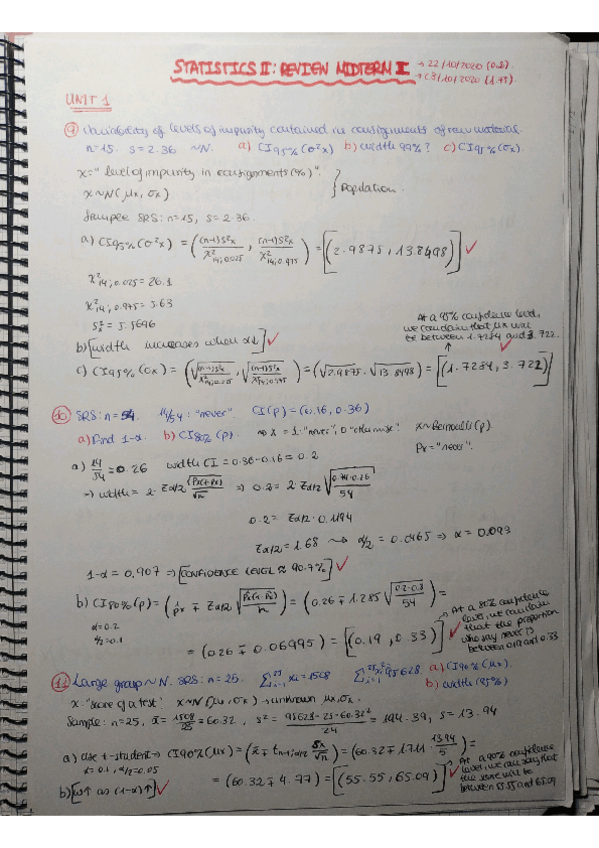 STATISTICS II: REVIEW MIDTERM I → 22/10/2020 (0.2).
UNIT 1
9) Variability of levels of impurity contained in consignments of raw material.
n=15. s=2.36 ~N. a) CI95%(σ²x) b) width 99%? c) CI95%(σx).
x="level of impurity in consignments (%)".
x~N(μx, σx) } Population.
Sample SRS: n=15, s=2.36.
a) CI95%(σ²x) = ((n-1)s²x / χ²14;0.025 , (n-1)s²x / χ²14;0.975) = [(2.9875, 13.8498)] ✓
χ²14;0.025 = 26.1
χ²14;0.975 = 5.63
s²x = 5.5696
At a 95% confidence level, we can claim that
be between 1.7284 and 3.722.
b) [width increases when α↓] ✓
c) CI95%(σx) = (√((n-1)s²x / χ²14;0.025), √((n-1)s²x / χ²14;0.975)) = (√2.9875, √13.8498) = [(1.7284, 3.722)] ✓
10) SRS: n=54. 14/54: "never". CI(p)=(0.16, 0.36)
a) Find 1-α. b) CI80%(p). x=1 "never", 0 "otherwise" x~Bernoulli(p).
Px="never".
a) 14/54 = 0.26 width CI = 0.36-0.16 = 0.2
⇒ width = 2· Zα/2 ⇒ 0.2 = 2· Zα/2 54
0.2 = Zα/2 · 0.1194
Zα/2 = 1.68 → α/2 = 0.0465 ⇒ α = 0.093
1-α = 0,907 ⇒ [CONFIDENCE LEVEL ≈ 90.7%] ✓
b) CI80%(p) = (p̂x ∓ Zα/2 ) = (0.26 ∓ 1.285 54) =
α=0.2
α/2=0.1
= (0.26 ∓ 0.06995) = [(0.19, 0.33)] ✓
At a 80% confidence level, we can claim that the proportion who say never is between 0.19 and 0.33
Large group ~N. SRS: n=25. Σ xi = 1508 Σ 95628. a) CI90%(μx).
b) width (95%)
x="score of a test" x~N(μx, σx) → unknown μx, σx.
Sample: n=25, x̄ = 1508/25 = 60.32, s² = (95628-25·60.32²)/24 = 194.39, s = 13.94
a) Use t-student ⇒ CI90%(μx) = (x̄ ∓ tn-1;α/2 sx/√n) = (60.32 ∓ 1.711 · 13.94/5) =
α=0.1, α/2=0.05
= (60.32 ∓ 4.77) = [(55.55, 65.09)] ✓
At a 90% confidence level, we can say that the score will be between 55.55 and 65.09
b) [w↑ as (1-α)↑] ✓